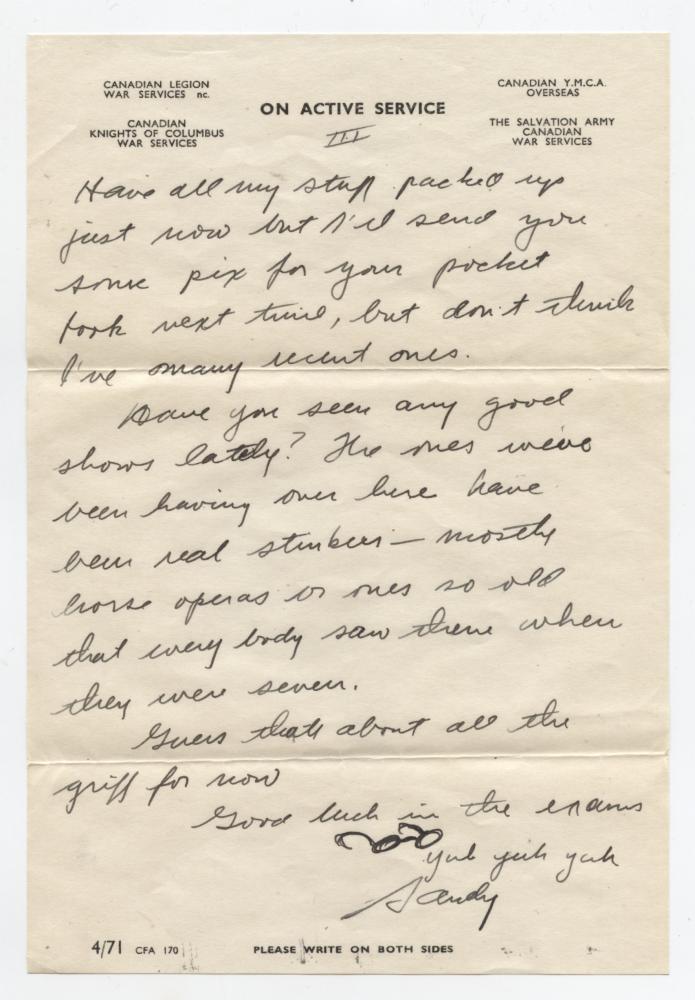 CANADIAN LEGION
WAR SERVICES nc.
CANADIAN
KNIGHTS OF COLUMBUS
WAR SERVICES
ON ACTIVE SERVICE
III
CANADIAN Y.M.C.A.
OVERSEAS
THE SALVATION ARMY
CANADIAN
WAR SERVICES
Have all my stuff packed up
just now but I'll send you
some pix for your pocket
book next time, but don't think
I've many recent ones.
Have you seen any good
shows lately? The ones we've
been having over here have
been real stinkers — mostly
horse operas or ones so old
that every body saw them when
they were seven.
Guess thats about all the
griff for now
Good luck in the exams
yuk yuk yuk
Sandy
4/71 CFA 170
PLEASE WRITE ON BOTH SIDES